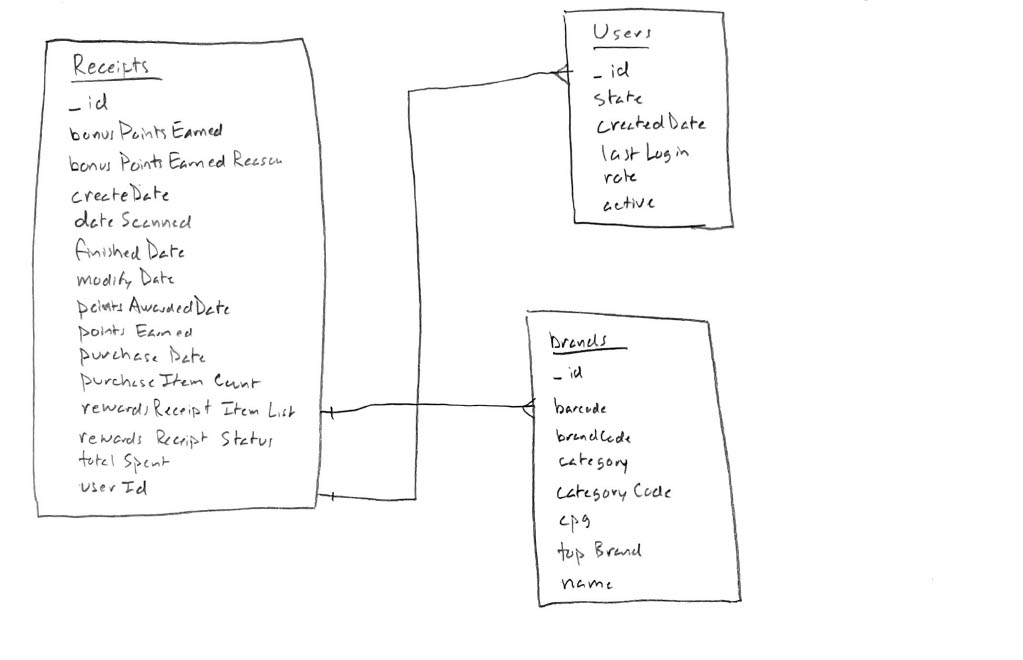 Receipts
_id
bonus Points Earned
bonus Points Earned Reason
createDate
date Scanned
finished Date
modify Date
points AwardedDate
points Earned
purchase Date
purchase Item Count
rewards Receipt Item List
rewards Receipt Status
total Spent
user Id
Users
_id
state
createdDate
last Login
role
active
brands
_id
barcode
brandCode
category
category Code
cpg
top Brand
name